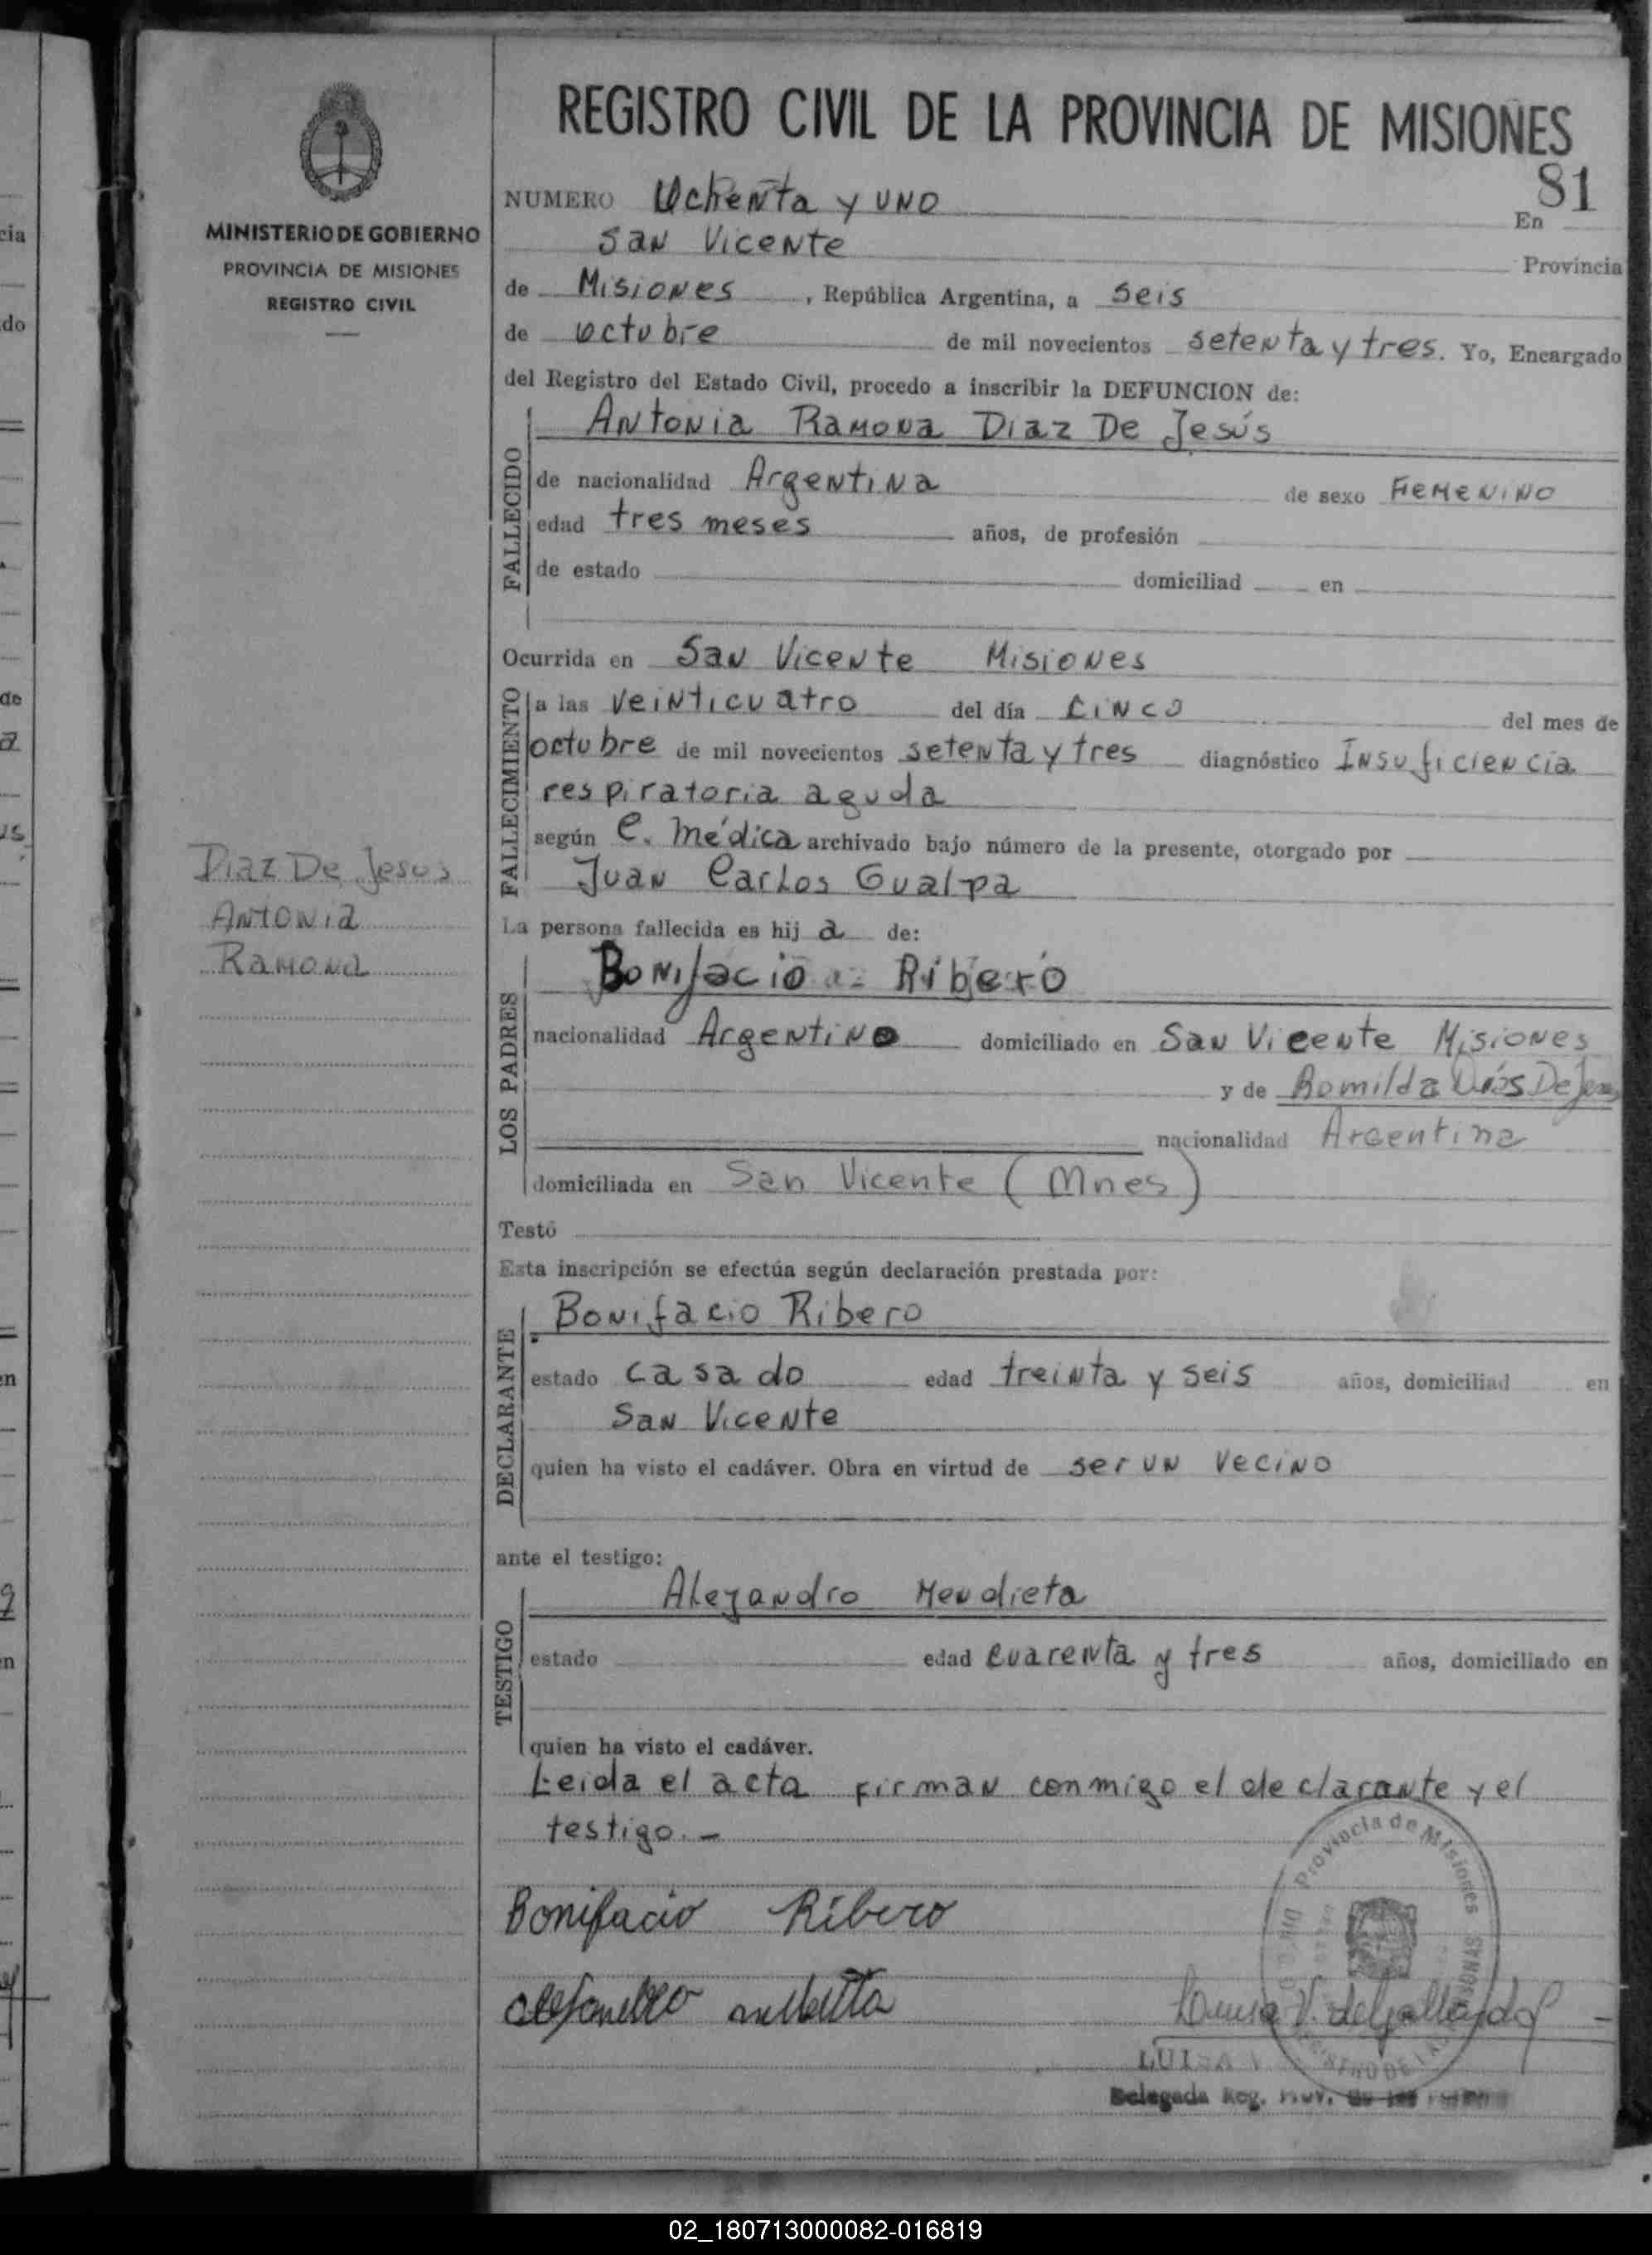 REGISTRO CIVIL DE LA PROVINCIA DE MISIONES
81
MINISTERIO DE GOBIERNO
PROVINCIA DE MISIONES
REGISTRO CIVIL
NUMERO Ochenta y uno En
San Vicente Provincia
de Misiones , República Argentina, a seis
de octubre de mil novecientos setenta y tres. Yo, Encargado
del Registro del Estado Civil, procedo a inscribir la DEFUNCION de:
Antonia Ramona Diaz De Jesús
FALLECIDO
de nacionalidad Argentina de sexo Femenino
edad tres meses años, de profesión
de estado domiciliad en
Ocurrida en San Vicente Misiones
FALLECIMIENTO
a las veinticuatro del día cinco del mes de
octubre de mil novecientos setenta y tres diagnóstico Insuficiencia
respiratoria aguda
según C. médica archivado bajo número de la presente, otorgado por
Juan Carlos Gualpa
Diaz De Jesus
Antonia
Ramona
La persona fallecida es hij a de:
LOS PADRES
Bonifacio Ribero
nacionalidad Argentino domiciliado en San Vicente Misiones
y de Romilda De Jesus
nacionalidad Argentina
domiciliada en San Vicente (Mnes)
Testó
Esta inscripción se efectúa según declaración prestada por:
DECLARANTE
Bonifacio Ribero
estado casado edad treinta y seis años, domiciliad en
San Vicente
quien ha visto el cadáver. Obra en virtud de ser un vecino
ante el testigo:
TESTIGO
Alejandro Mendieta
estado edad cuarenta y tres años, domiciliado en
quien ha visto el cadáver.
Leida el acta firman conmigo el declarante y el
testigo.-
Provincia de Misiones
Bonifacio Ribero
LUISA V.
Delegada Reg. Prov. de las
02_180713000082-016819